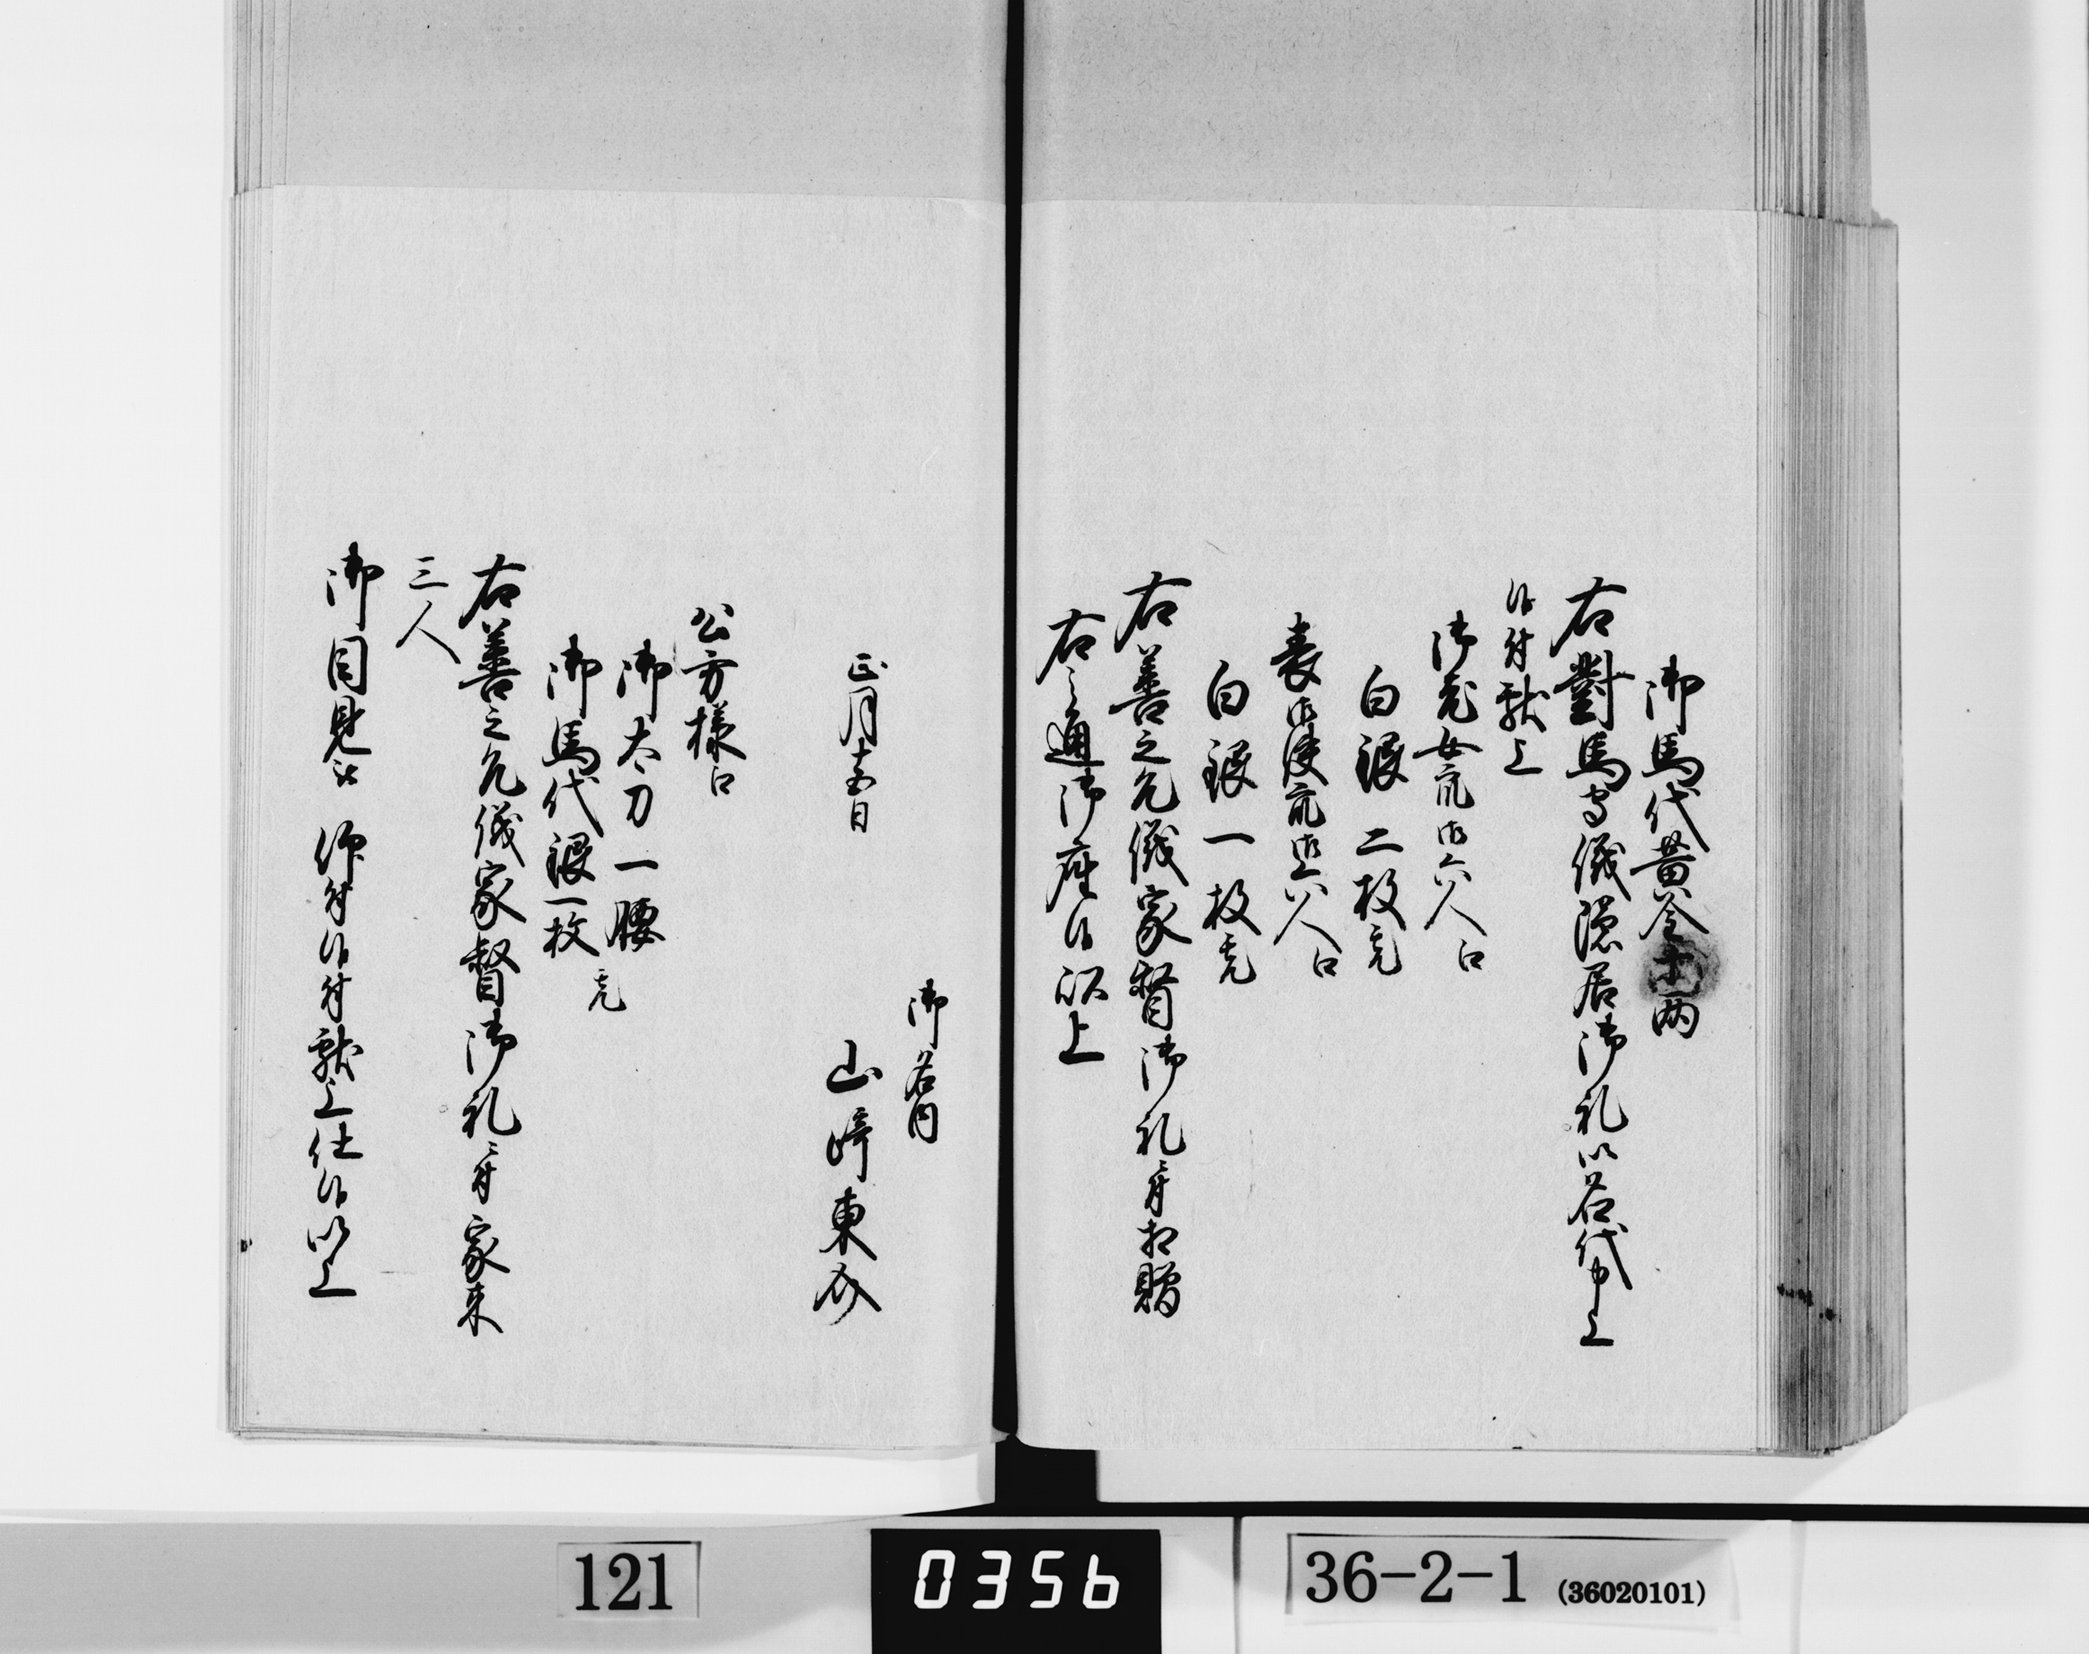 御馬代黄金十両
右對馬守儀隠居御礼以名代申上
候付献上
御老女衆御六人江
白銀二枚充
表御使衆御六人江
白銀一枚充
右善之允儀家督御礼ニ付相贈
右之通御座候以上
御名内
正月十五日 山崎東介
公方様江
御太刀一腰
御馬代銀一枚充
右善之允儀家督御礼ニ付家来
三人
御目見被 仰付候付献上仕候以上
121
0356
36-2-1 (36020101)